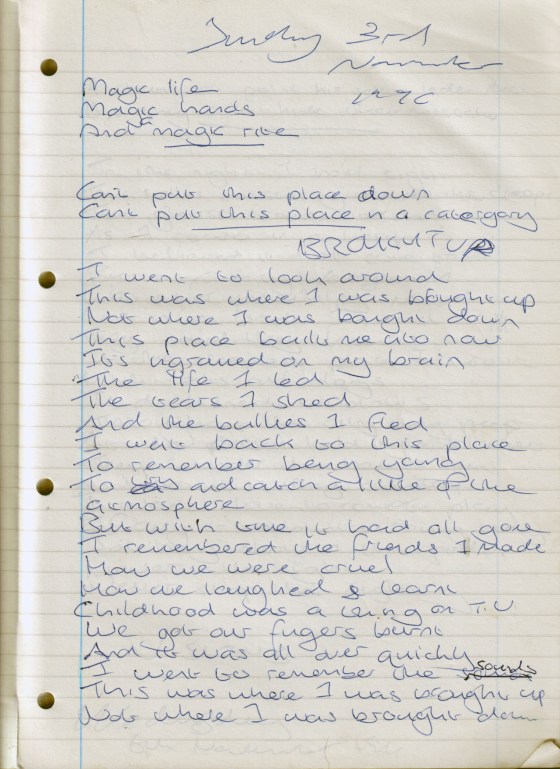 Sunday 3rd
November
Magic life
Magic hands
And magic rite
Can't put this place down
Can't put this place in a catergory
BROUGHT UP
I went to look around
This was where I was bought up
Not where I was bought down
This place built me into now
It's ingrained on my brain
The life I led
The tears I shed
And the bullies I fled
I went back to this place
To remember being young
To and catch a little of the
atmosphere
But with time it had all gone
I remembered the friends I made
How we were cruel
How we laughed & learnt
Childhood was a thing on T.V.
We got our fingers burnt
And it was all over quickly
I went to remember the sounds
This was where I was brought up
Not where I was brought down